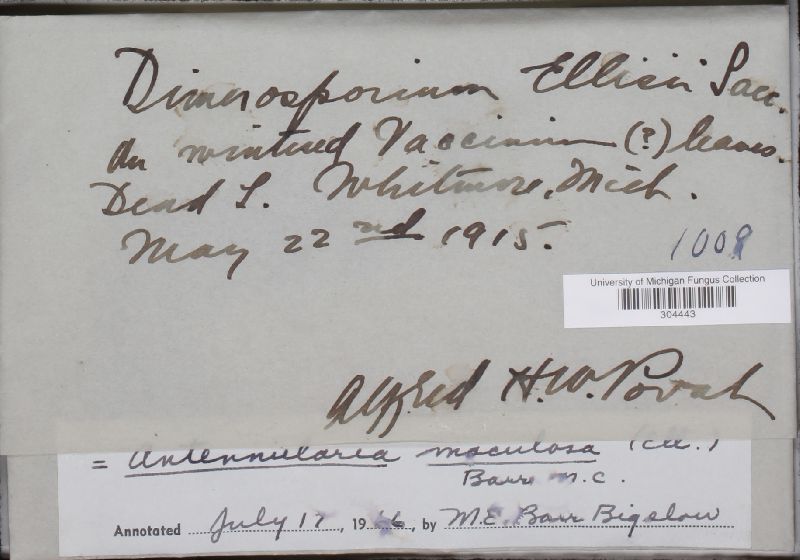 Dimerosporium Ellisii Sacc.
On wintered Vaccinium (?) leaves.
Dead L. Whitmore, Mich.
May 22nd 1915.
1009
University of Michigan Fungus Collection
304443
Alfred H.W. Povah
= Antennularia maculosa (Ell.)
Barr n.c.
Annotated July 17, 1966, by M.E. Barr Bigelow